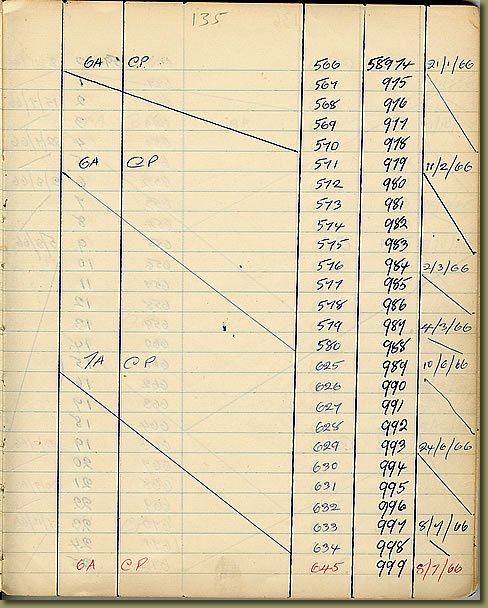 135
6A CP 566 58974 21/1/66
567 975
568 976
569 977
570 978
6A CP 571 979 11/2/66
572 980
573 981
574 982
575 983
576 984 2/3/66
577 985
578 986
579 987 4/3/66
580 988
7A CP 625 989 10/6/66
626 990
627 991
628 992
629 993 24/6/66
630 994
631 995
632 996
633 997 8/7/66
634 998
6A CP 645 999 5/7/66